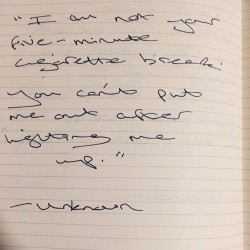 "I am not your
five-minute
cigarette break.
You can't put
me out after
lighting me
up."
-unknown